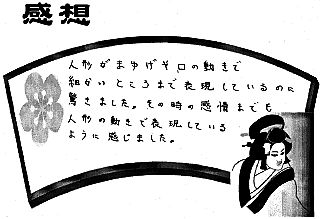 感想
人形がまゆげそ口の動きで
細かいところまで表現しているのに
驚きました。その時の感情までも
人形の動きで表現している
ように感じました。